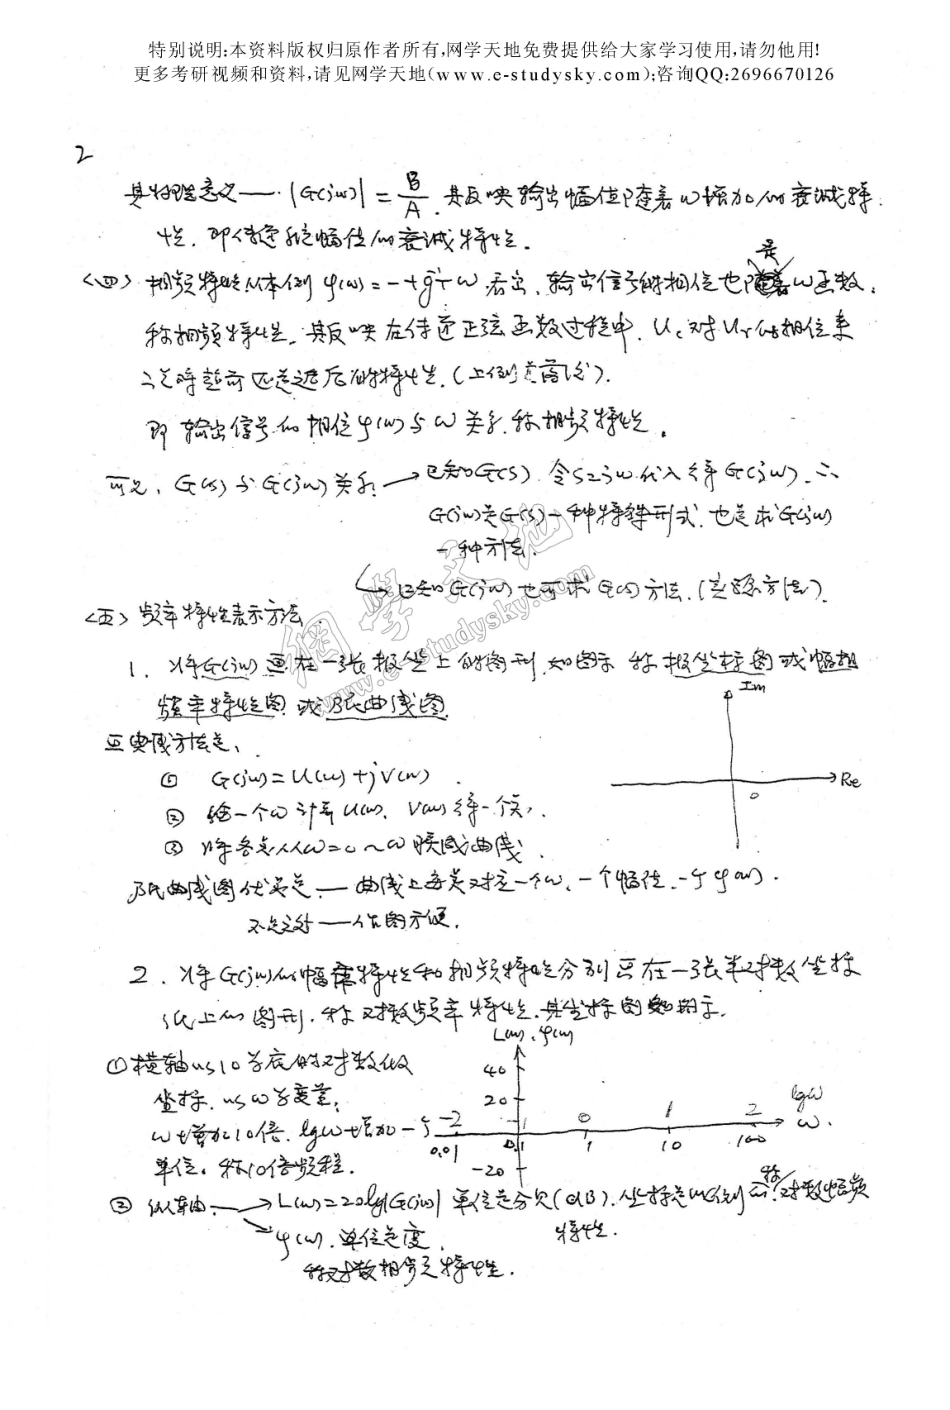 特别说明:本资料版权归原作者所有,网学天地免费提供给大家学习使用,请勿他用!
更多考研视频和资料,请见网学天地(www.e-studysky.com);咨询QQ:2696670126
2
其物理意义——|G(jω)| = B/A. 其反映输出幅值随着ω增加的衰减特
性. 即传递正弦幅值的衰减特性.
<四> 相频特性从本例 φ(ω) = -tg⁻¹τω 看出、输出信号的相位也是ω函数,
称相频特性. 其反映在传递正弦函数过程中, Uc对Ur的相位系
即输出信号的相位φ(ω)与ω关系, 称相频特性.
可见, G(s)与G(jω)关系: → 已知G(s) 令s=jω代入得G(jω), ∴
G(jω)是G(s)一种特殊形式, 也是求G(jω)
一种方法.
↳ 已知G(jω)也可求G(s)方法. (实验方法).
<五> 频率特性表示方法
1. 将G(jω)画在一张极坐上的图形, 如图示 称极坐标图或幅相
频率特性图 或乃氏曲线图
Im
① G(jω)=U(ω)+jV(ω)
Re
0
② 给一个ω计算U(ω), V(ω)得一个点,
③ 将各点从ω=0~∞ 联成曲线
乃氏曲线图优点是——曲线上每点对应一个ω, 一个幅值, 一个φ(ω).
不足之处——作图不便.
2. 将G(jω)的幅频特性和相频特性分别画在一张半对数坐标
纸上的图形, 称对数频率特性. 其坐标图如图示.
L(ω), φ(ω)
①横轴以10为底的对数化的
坐标, 以ω为变量,
ω增加10倍, lgω增加一个
单位, 称10倍频程.
40
20
-20
-2 -1 0 1 2 lgω
0.01 0.1 1 10 100 ω
② 纵轴: → L(ω)=20lg|G(jω)| 单位是分贝(dB), 称对数幅频
特性.
→ φ(ω), 单位是度,
称对数相频特性.
網學天地
www.e-studysky.com